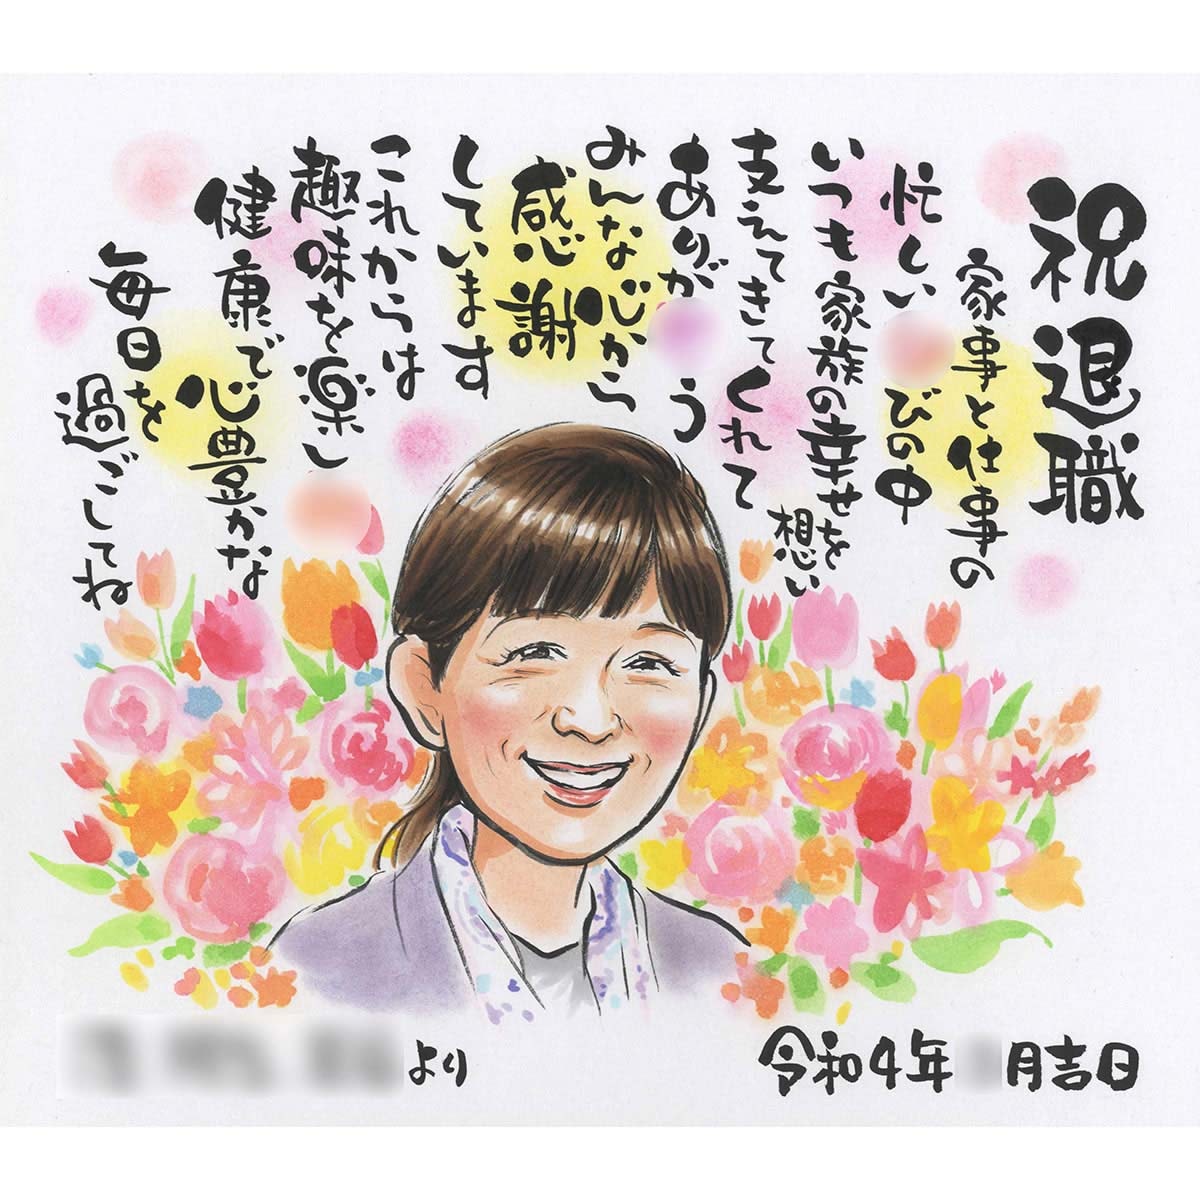 祝退職
家事と仕事の
忙しい びの中
いつも家族の幸せを
想い
支えてきてくれて
ありが う
みんな心から
感謝
しています
これからは
趣味を楽し
健康で心豊かな
毎日を
過ごしてね
より
令和4年 月吉日